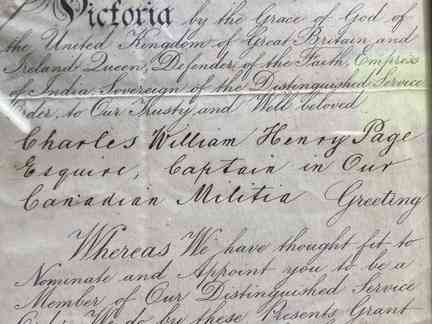 Victoria by the Grace of God of
the United Kingdom of Great Britain and
Ireland Queen, Defender of the Faith, Empress
of India, Sovereign of the Distinguished Service
Order, to Our Trusty and Well beloved
Charles William Henry Page
Esquire, Captain in Our
Canadian Militia Greeting
Whereas We have thought fit to
Nominate and Appoint you to be a
Member of Our Distinguished Service
Order We do by these Presents Grant